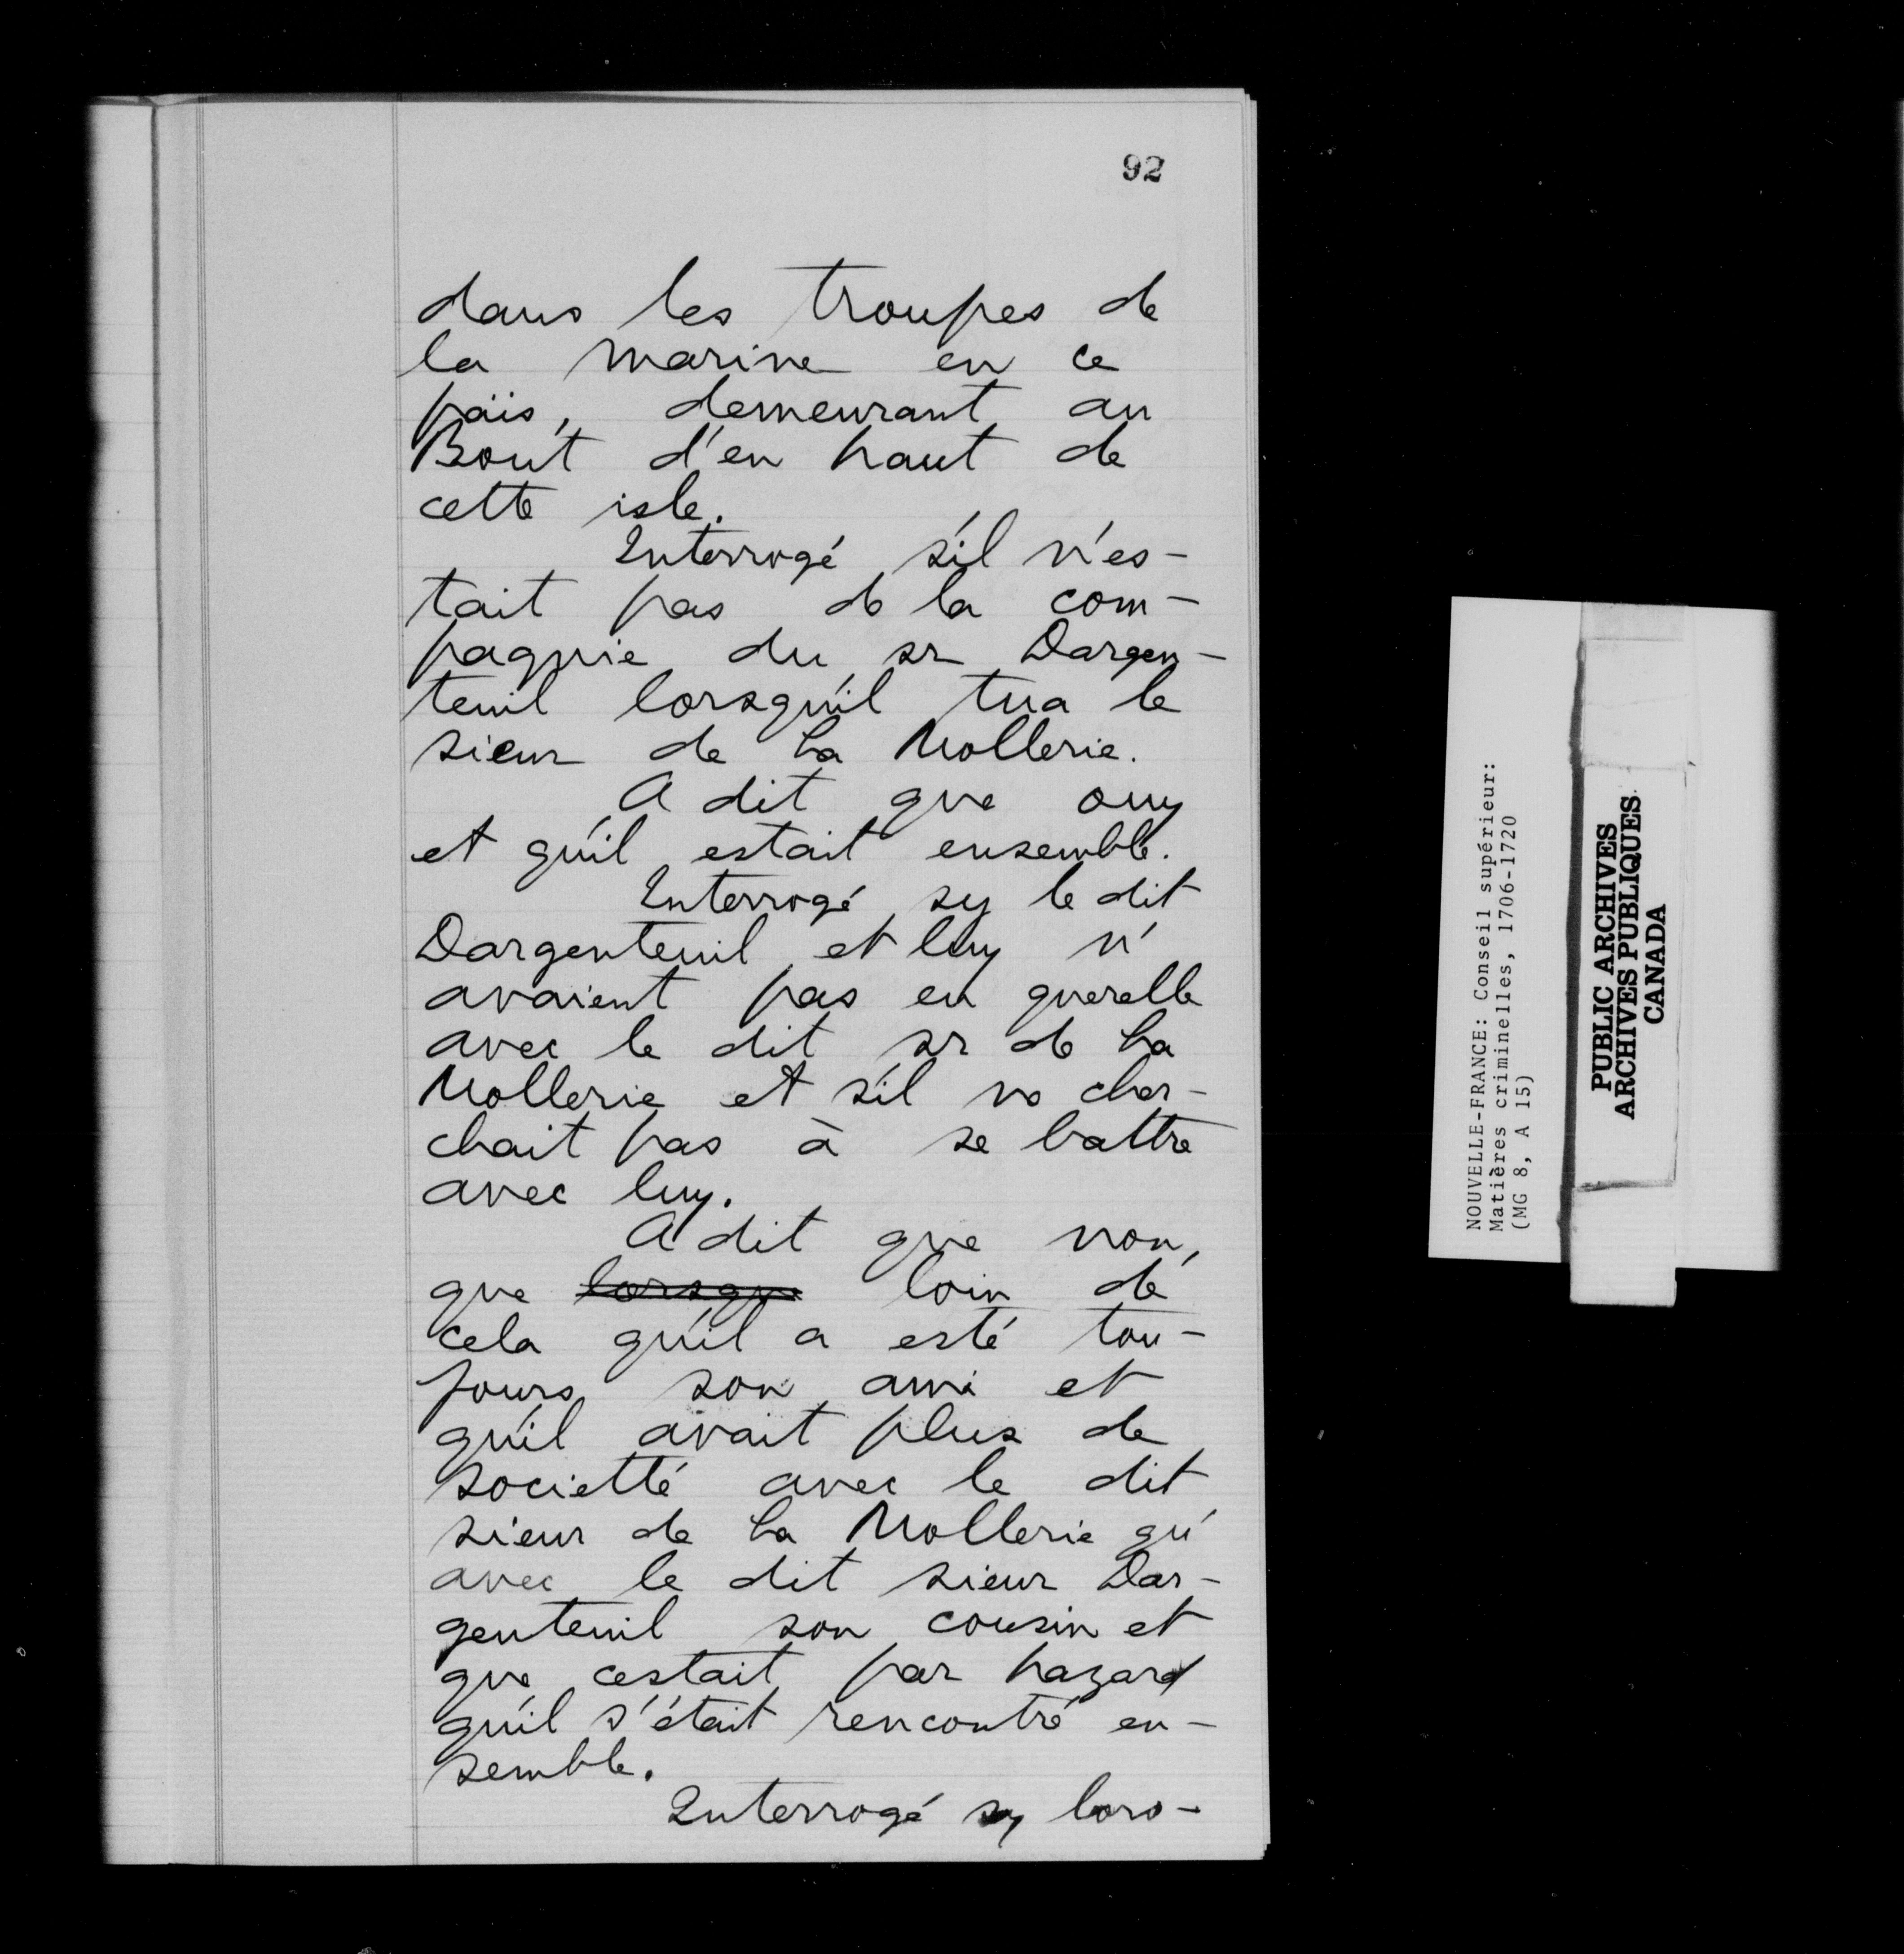 92
dans les troupes de
la marine en ce
païs, demeurant au
Bout d'en haut de
cette isle.
Interrogé s'il n'es-
tait pas de la com-
pagnie du sr Dargen-
teuil lorsqu'il tua le
sieur de La Mollerie.
A dit que ouy
et qu'il estait ensemble.
Interrogé sy le dit
Dargenteuil et luy n'
avaient pas eu querelle
avec le dit sr de La
Mollerie et s'il ne cher-
chait pas à se battre
avec luy.
A dit que non,
que lorsque loin de
cela qu'il a esté tou-
jours son ami et
qu'il avait plus de
societté avec le dit
sieur de La Mollerie qu'
avec le dit sieur Dar-
genteuil son cousin et
que cestait par hazard
qu'il s'était rencontré en-
semble.
Interrogé sy lors-
NOUVELLE-FRANCE: Conseil supérieur:
Matières criminelles, 1706-1720
(MG 8, A 15)
PUBLIC ARCHIVES
ARCHIVES PUBLIQUES
CANADA